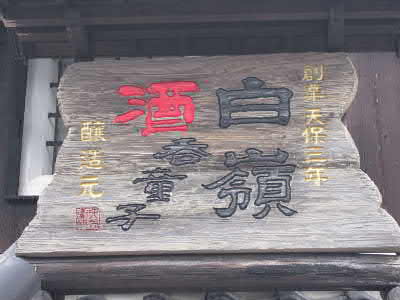 創業天保三年
白嶺
酒呑童子
醸造元